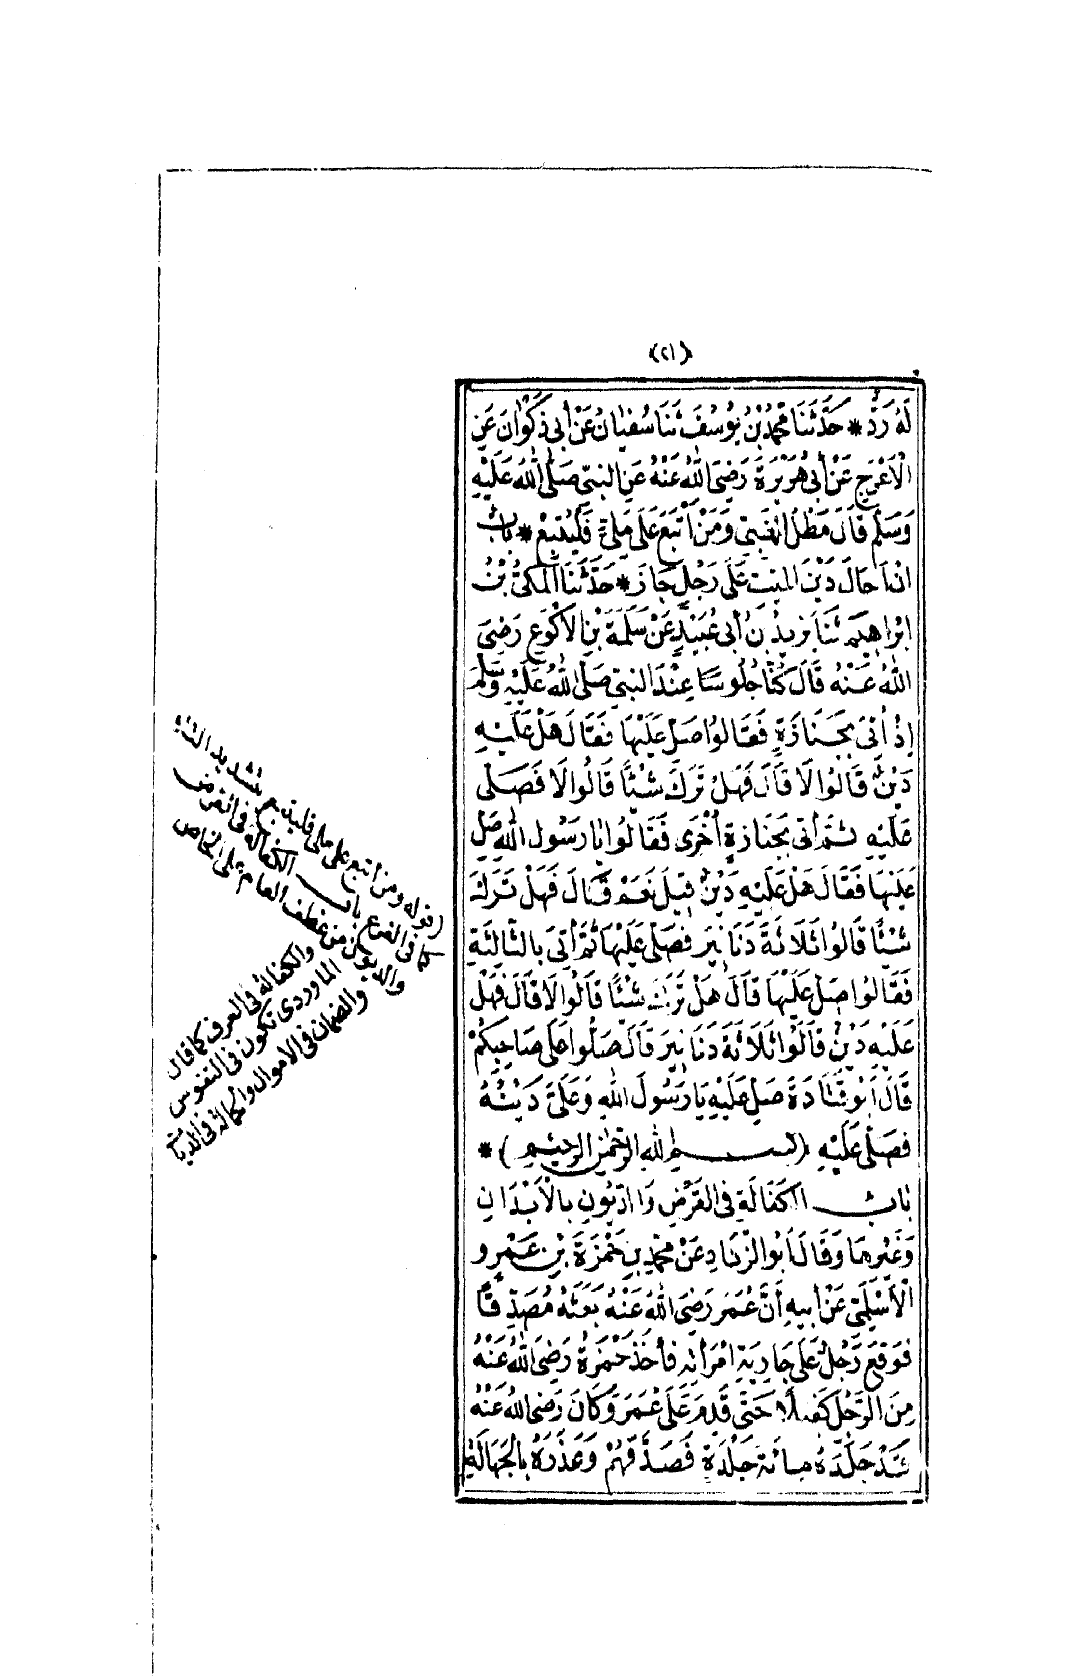 (٢١)
لَهُ رَدٌّ * حَدَّثَنَا مُحَمَّدُ بْنُ يُوسُفَ ثَنَا سُفْيَانُ عَنْ أَبِي ذَكْوَانَ عَنِ
الْأَعْرَجِ عَنْ أَبِي هُرَيْرَةَ رَضِيَ اللهُ عَنْهُ عَنِ النَّبِيِّ صَلَّى اللهُ عَلَيْهِ
وَسَلَّمَ قَالَ مَطْلُ الْغَنِيِّ وَمَنْ أُتْبِعَ عَلَى مَلِيٍّ فَلْيَتْبَعْ * بَابُ
إِذَا حَالَ دَيْنَ الْمَيِّتِ عَلَى رَجُلٍ جَازَ * حَدَّثَنَا الْمَكِّيُّ بْنُ
إِبْرَاهِيمَ ثَنَا يَزِيدُ بْنُ أَبِي عُبَيْدٍ عَنْ سَلَمَةَ بْنِ الْأَكْوَعِ رَضِيَ
اللهُ عَنْهُ قَالَ كُنَّا جُلُوسًا عِنْدَ النَّبِيِّ صَلَّى اللهُ عَلَيْهِ وَسَلَّمَ
إِذْ أُتِيَ بِجَنَازَةٍ فَقَالُوا صَلِّ عَلَيْهَا فَقَالَ هَلْ عَلَيْهِ
دَيْنٌ قَالُوا لَا قَالَ فَهَلْ تَرَكَ شَيْئًا قَالُوا لَا فَصَلَّى
عَلَيْهِ ثُمَّ أُتِيَ بِجَنَازَةٍ أُخْرَى فَقَالُوا يَا رَسُولَ اللهِ صَلِّ
عَلَيْهَا فَقَالَ هَلْ عَلَيْهِ دَيْنٌ قِيلَ نَعَمْ قَالَ فَهَلْ تَرَكَ
شَيْئًا قَالُوا ثَلَاثَةَ دَنَانِيرَ فَصَلَّى عَلَيْهَا ثُمَّ أُتِيَ بِالثَّالِثَةِ
فَقَالُوا صَلِّ عَلَيْهَا قَالَ هَلْ تَرَكَ شَيْئًا قَالُوا لَا قَالَ فَهَلْ
عَلَيْهِ دَيْنٌ قَالُوا ثَلَاثَةُ دَنَانِيرَ قَالَ صَلُّوا عَلَى صَاحِبِكُمْ
قَالَ أَبُو قَتَادَةَ صَلِّ عَلَيْهِ يَا رَسُولَ اللهِ وَعَلَيَّ دَيْنُهُ
فَصَلَّى عَلَيْهِ (بِسْمِ اللهِ الرَّحْمَنِ الرَّحِيمِ) *
بَابُ الْكَفَالَةِ فِي الْقَرْضِ وَالدُّيُونِ بِالْأَبْدَانِ
وَغَيْرِهَا وَقَالَ أَبُو الزِّنَادِ عَنْ مُحَمَّدِ بْنِ حَمْزَةَ بْنِ عَمْرٍو
الْأَسْلَمِيِّ عَنْ أَبِيهِ أَنَّ عُمَرَ رَضِيَ اللهُ عَنْهُ بَعَثَهُ مُصَدِّقًا
فَوَقَعَ رَجُلٌ عَلَى جَارِيَةِ امْرَأَتِهِ فَأَخَذَ حَمْزَةُ رَضِيَ اللهُ عَنْهُ
مِنَ الرَّجُلِ كَفِيلًا حَتَّى قَدِمَ عَلَى عُمَرَ وَكَانَ رَضِيَ اللهُ عَنْهُ
قَدْ جَلَدَهُ مِائَةَ جَلْدَةٍ فَصَدَّقَهُمْ وَعَذَرَهُ بِالْجَهَالَةِ
(قوله ومن اتبع على ملي فليتبع بتشديد التاء
كما في الفرع باب الكفالة في القرض
والديون من عطف العام على الخاص
والكفالة في العرف كما قال
الماوردي تكون في النفوس
والضمان في الاموال والحمالة في الديات